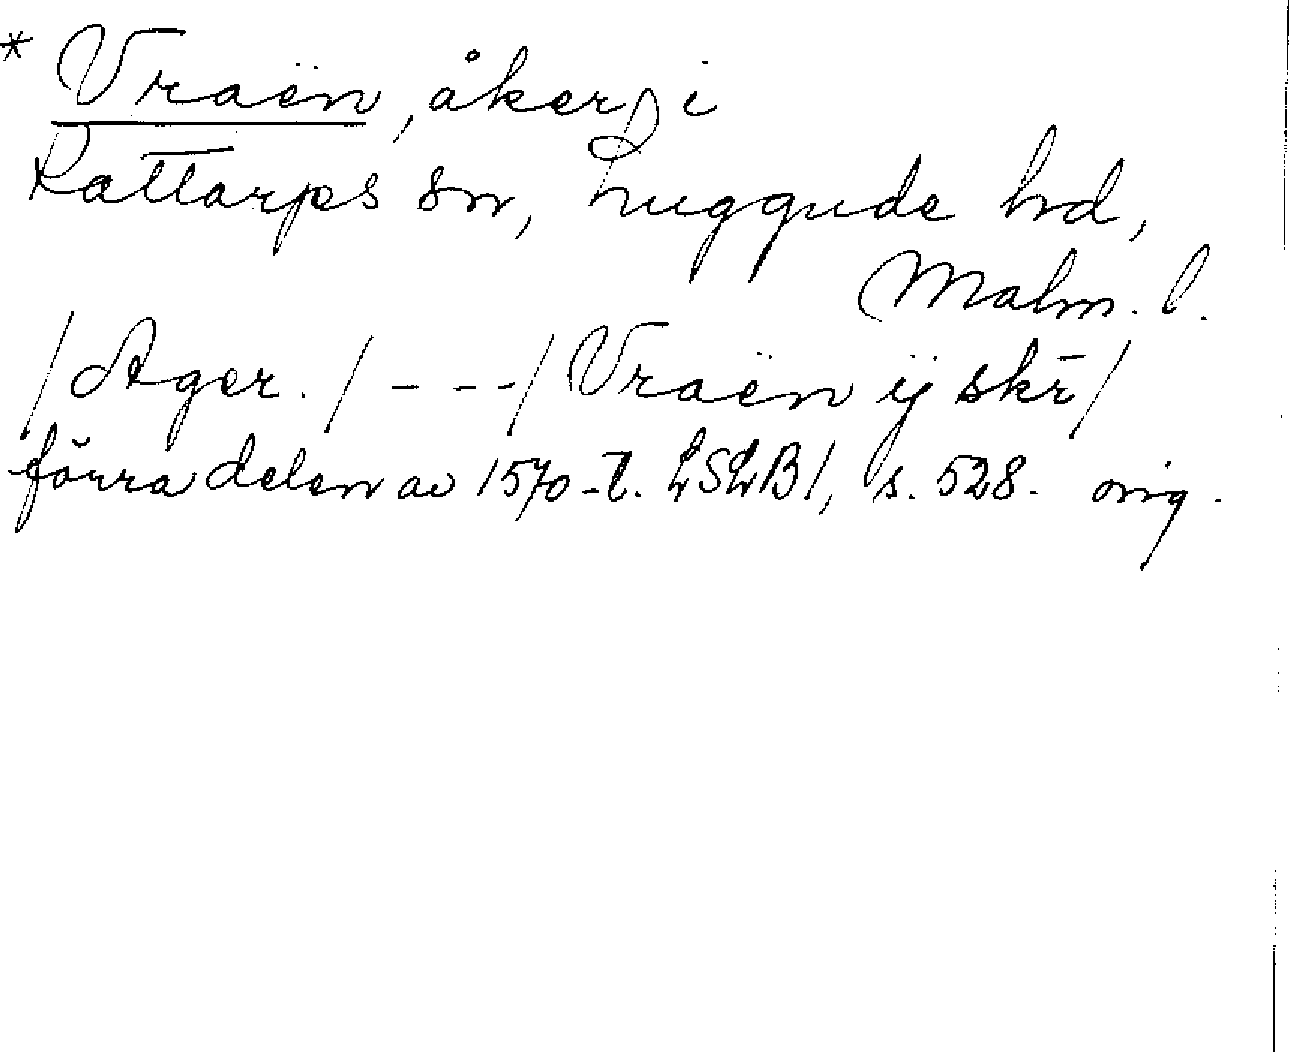 * Vraën, åker, i
Kattarps sn, Luggude hd,
Malm. l.
/Ager./ - - - / Vraën ij skr̄ /
förra delen av 1570-t. LSLB1, s. 528. orig.